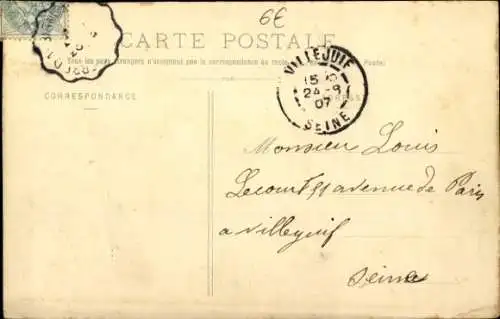 6€
CARTE POSTALE
Tous les pays étrangers n'acceptent pas la correspondance au recto
Poste)
CORRESPONDANCE
VILLEJUIF
15
24 -9
07
SEINE
Monsieur Louis
Lecourt 91 avenue de Paris
a villejuif
Seine